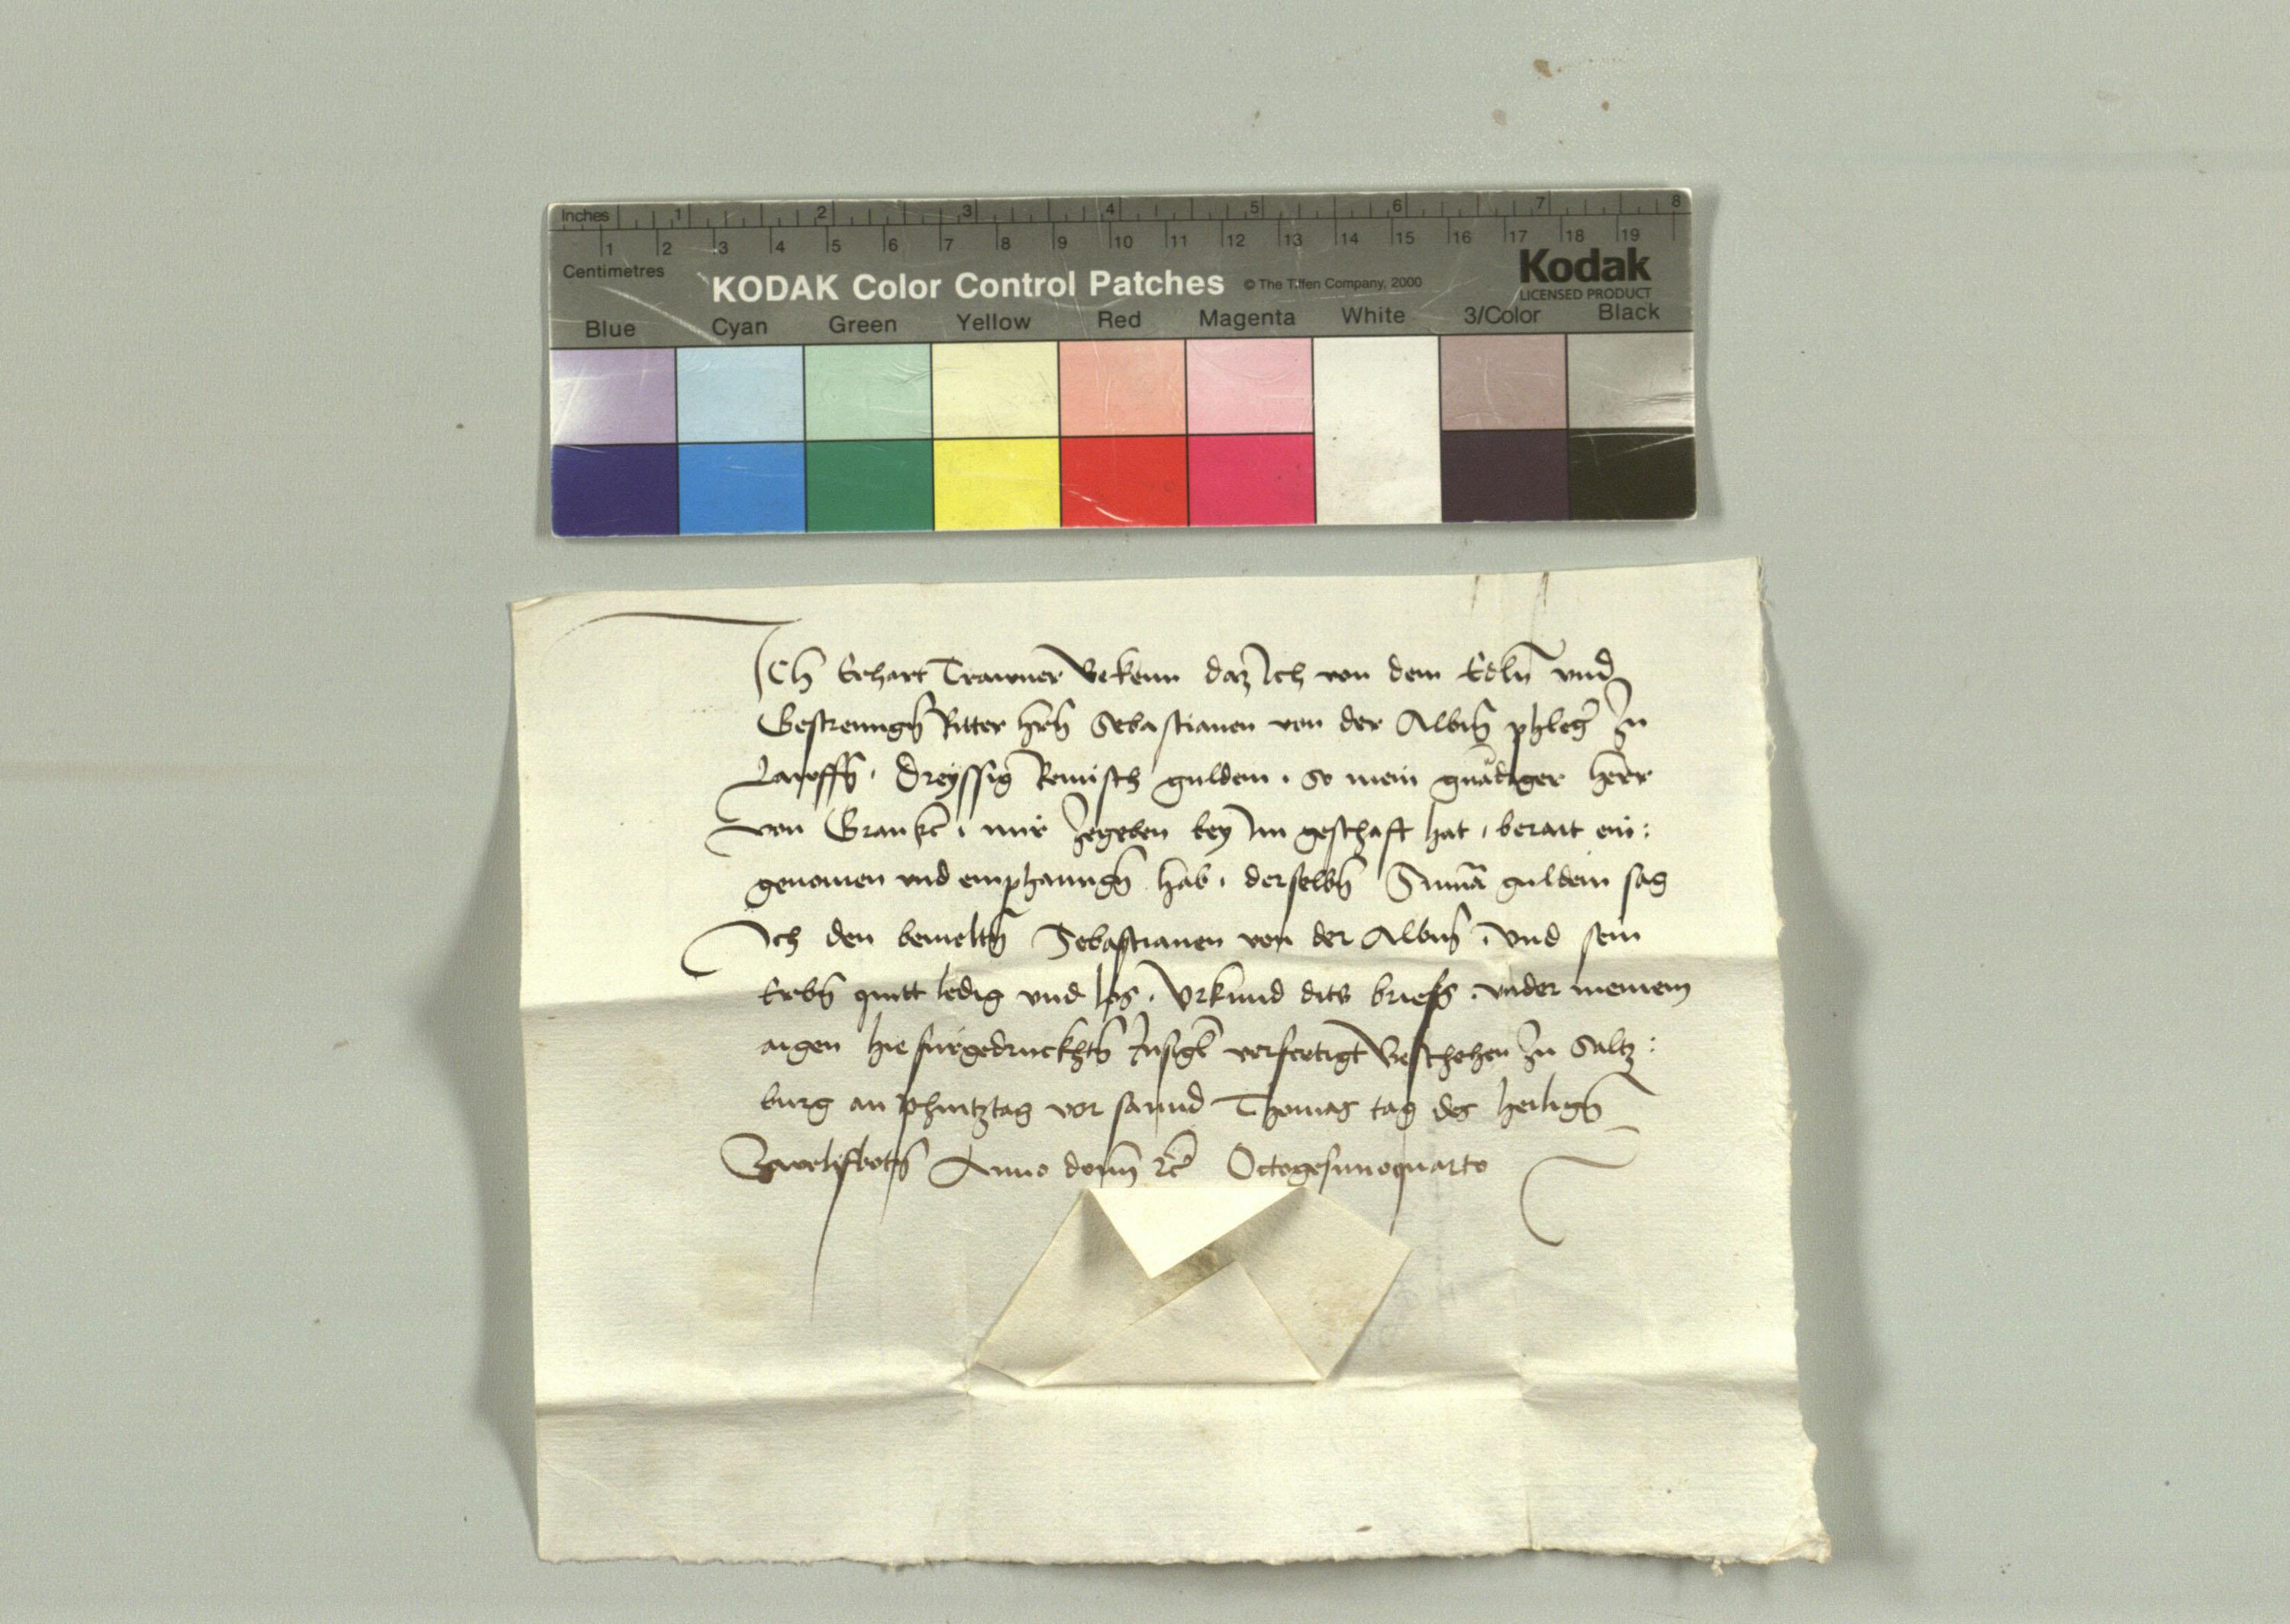 Inches 1 2 3 4 5 6 7 8
1 2 3 4 5 6 7 8 9 10 11 12 13 14 15 16 17 18 19
Centimetres
KODAK Color Control Patches © The Tiffen Company, 2000
Kodak
LICENSED PRODUCT
Blue Cyan Green Yellow Red Magenta White 3/Color Black
Ich Erhart Trawner Bekenn daz Ich von dem Edln vnd
Gestrenngn Ritter hrn Sebastianen von der Albm phleger zu
Lauffn, Dreyssig Reinisch guldein, so mein gnädiger herr
von mir zegeben bey Im geschafft hat, berait ein:
genomen vnd emphanngn hab, derselbn Summa guldein sag
Ich den bemeltn Sebastianen von der Albm, vnd sein
Erbn quitt ledig vnd los, Vrkund dits briefs, vnder meinem
aigen hie fürgedruckhtn Insigl verfertigt Beschehen zu Saltz:
burg an phintztag vor sannd Thomas tag des heilign
Zwelifbotn Anno domini Octogesimoquarto